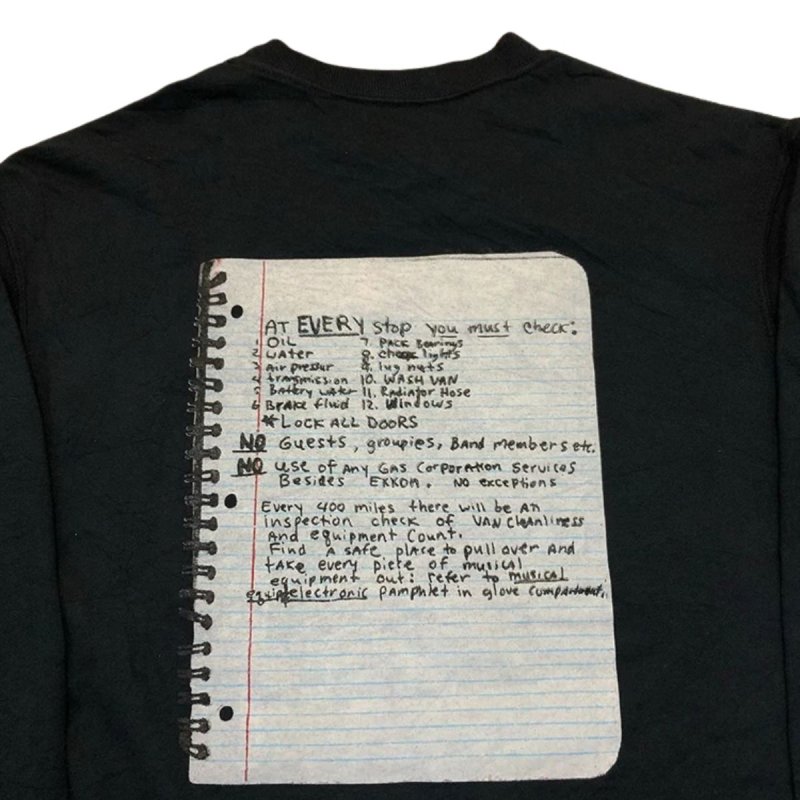 AT EVERY stop you must check:
1. OIL 7. PACK Bearings
2. water 8. check lights
3. air pressur 9. lug nuts
4. transmission 10. WASH VAN
5. Battery water 11. Radiator Hose
6. Brake fluid 12. Windows
*LOCK ALL DOORS
NO Guests, groupies, Band members etc.
NO use of Any GAS Corporation services
Besides EXXON. NO exceptions
Every 400 miles there will be AN
inspection check of VAN Cleanliness
And equipment Count.
Find A SAFE place to pull over AND
take every piete of musical
equipment out: refer to musical
equip/electronic PAMPhlet in glove cumpartment.